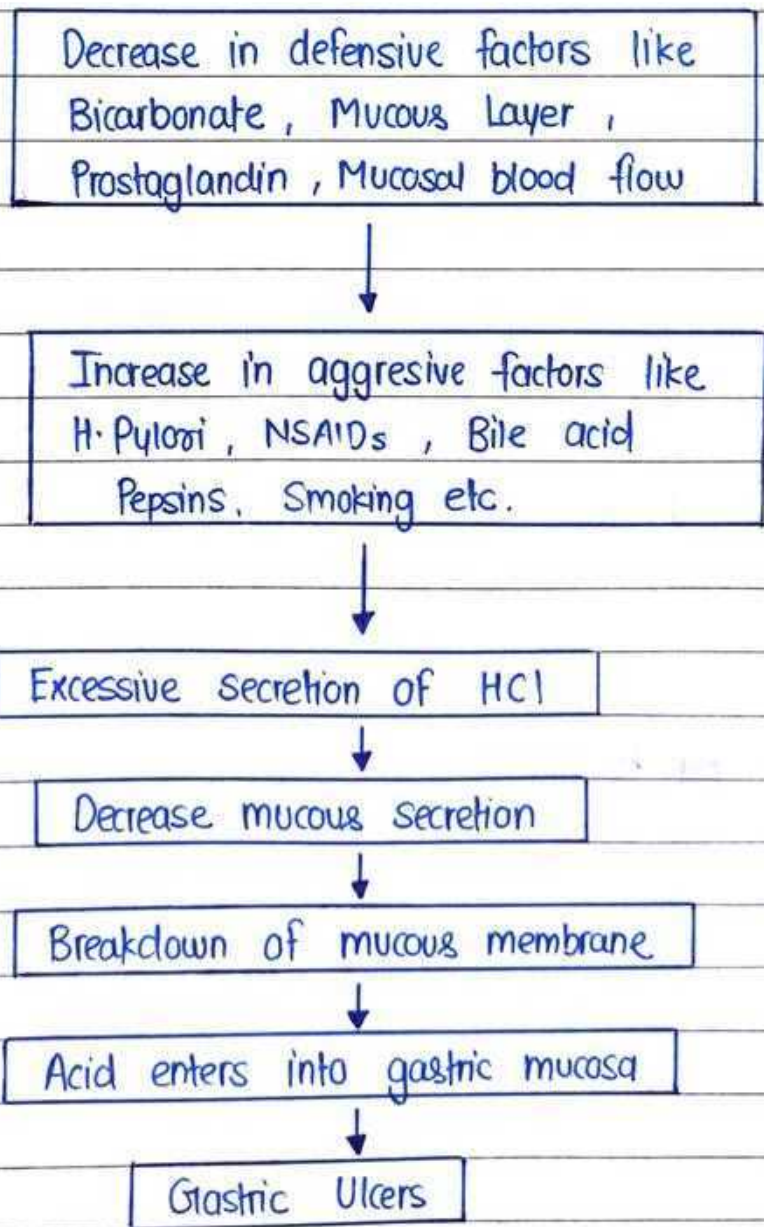 Decrease in defensive factors like
Bicarbonate, Mucous Layer,
Prostaglandin, Mucosal blood flow
Increase in aggresive factors like
H. Pylori, NSAIDs, Bile acid
Pepsins, Smoking etc.
Excessive secretion of HCl
Decrease mucous secretion
Breakdown of mucous membrane
Acid enters into gastric mucosa
Gastric Ulcers